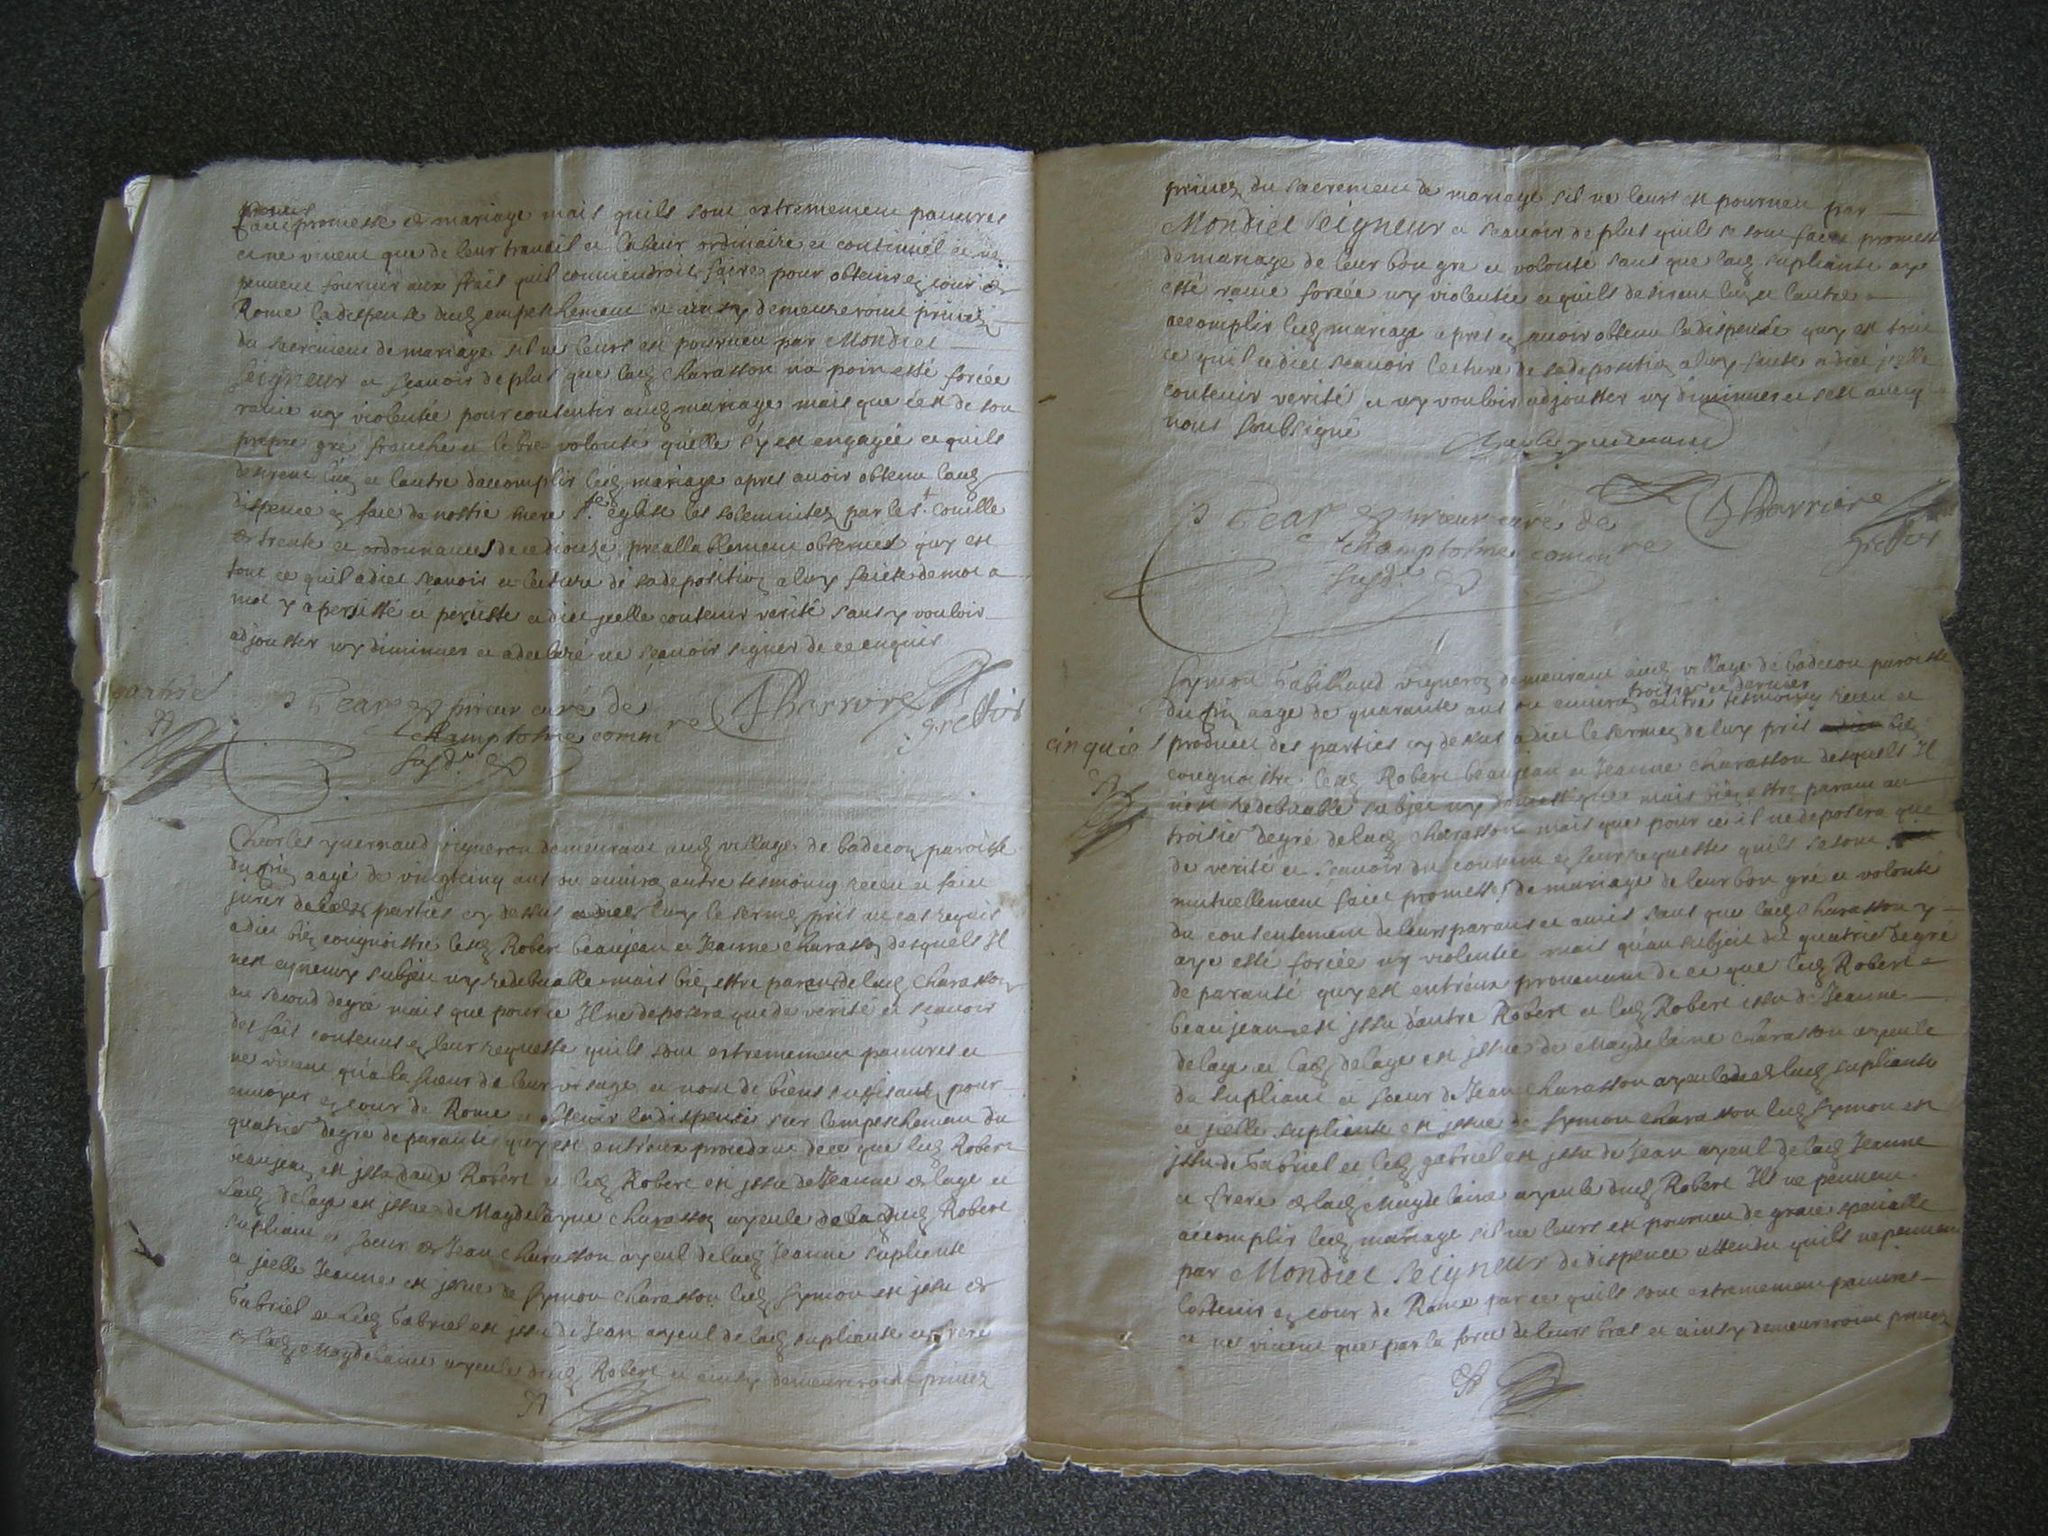 faict promesse de mariage mais quils sont extremement pauures
et ne viuent que de leur trauail et labeur ordinaire et continuel et ne
peuuent fournir aux frais quil conuiendroit faire pour obtenir en cour de
Rome la dispense dud empeschement et ainsy demeureroint priuez
du sacrement de mariage sil ne leurs est pourueu par Mondict
Seigneur et scauoir de plus que lad Charasson na point esté forcée
rauie ny violentée pour contentir aud mariage mais que cest de son
propre gré franche et libre volonté quelle sy est engagée et quils
desirent lun et lautre daccomplir led mariage apres auoir obtenu lad
dispence en face de nostre mere Ste eglise les solemnitez par le St. consille
de trente et ordonnances de ce dioceze preallablement obserueés quy est
tout ce quil a dict scauoir et lecture de sa deposition a luy faicte de mot a
mot y a persisté et persiste et dict jcelle contenir verité sans y vouloir
adjouster ny diminuer et a declaré ne scauoir signer de ce enquis
J Pear prieur curé de
Champtosme commre
susd.
Barriere
greffier
Charles yuernaud vigneron demeurant aud village de badecon paroisse
du pin aagé de vingtcinq ans ou enuiron autre tesmoing receu et faict
jurer desd parties cy dessus luy le serment pris au cas requis
a dict bien congnoistre lesd Robert beaujean et Jeanne Charasson desquels Il
nest ny subjet ny redebuable mais bien estre parent de lad Charasson
au second degré mais que pour ce Il ne deposera que de verité et scauoir
des fait contenus en leur requeste quils sont extremement pauures et
ne viuent qua la sueur de leur visage et nont de biens suffisants pour
enuoyer en cour de Rome obtenir la dispense sur lempeschement du
quatrie degré de parante quy est entreux procedant de ce que led Robert
beaujean est jssu dautre Robert et led Robert est jssu de Jeanne delage et
lad delage est jssue de Magdelayne Charasson ayeule dud Robert
supliant et soeur de Jean Charasson ayeul de lad Jeanne supliante
et jcelle Jeanne est jssue de Symon Charasson led Symon est jssu de
Gabriel et led Gabriel est jssu de Jean ayeul de lad supliante et frere
de lad Magdelaine ayeule dud Robert et ainsy demeureroint priuez
priuez du sacrement de mariage sil ne leurs est pourueu par
Mondict Seigneur et scauoir de plus quils se sont faict promesse
de mariage de leur bon gré et volonté sans que lad supliante aye
esté rauie forcée ny violentée et quils desirent lun et lautre
accomplir led mariage apres en auoir obtenu la dispense quy est tout
ce quil a dict scauoir lecture de sa deposition a luy faicte a dict jcelle
contenir verité et ny vouloir adjouster ny diminuer et sest auecq
nous soubsigné
J Pear prieur curé de
Champtosme commre
susd.
Barriere
greffier
cinquie
Symon Gabilhaud vigneron demeurant aud village de badecon paroisse
troisie et dernier
du pin aagé de quarante ans ou enuiron autre tesmoing receu et
produict des parties cy dessus a dict le serment de luy pris bien
congnoistre lesd Robert beaujean et Jeanne Charasson desquels Il
nest redebuable subjet ny domestique mais bien estre parant au
troisie degré de lad Charasson mais que pour ce il ne deposera que
de verité et scauoir du contenu en leur requeste quils se sont
mutuellement faict promesse de mariage de leur bon gré et volonté
du consentement de leurs parans et amis sans que lad Charasson y
aye esté forcée ny violentée mais quau subject du quatrie degré
de paranté quy est entreux prouenant de ce que led Robert
beaujean est jssu dautre Robert et led Robert issu de Jeanne
delage et lad delage est jssue de Magdelaine Charasson ayeule
du supliant et soeur de Jean Charasson ayeul de lad supliante
et jcelle supliante est jssue de Symon Charasson led Symon est
jssu de Gabriel et led gabriel est jssu de Jean ayeul de lad Jeanne
et frere de lad Magdelaine ayeule dud Robert Ils ne peuuent
accomplir led mariage sil ne leurs est pourueu de grace specialle
par Mondict Seigneur de dispence attendu quils ne peuuent
lobtenir en cour de Rome par ce quils sont extremement pauures
et ne viuent que par la force de leurs bras et ainsy demeureroint priuez